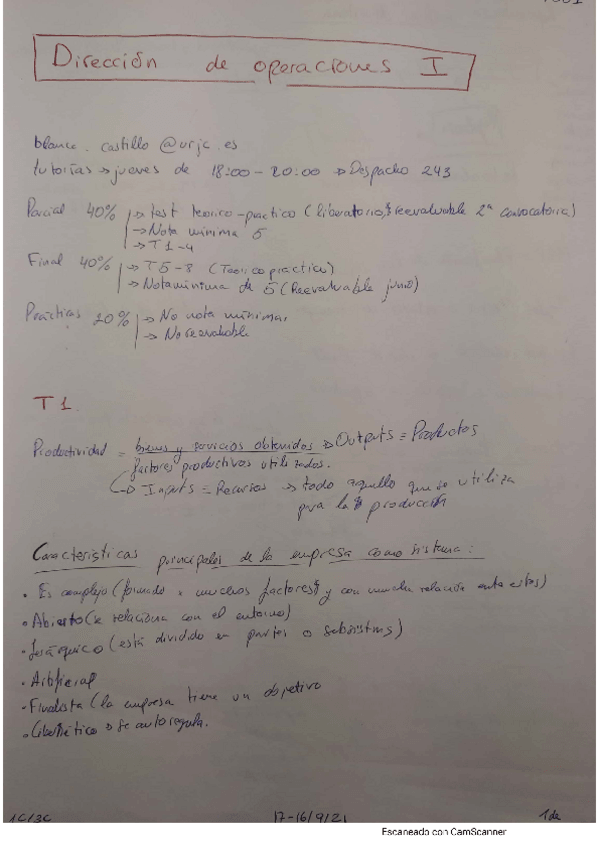 Dirección de operaciones I
blanca.castillo@urjc.es
tutorías → jueves de 18:00 - 20:00 → Despacho 243
Parcial 40% → test teorico-practico (liberatorio, reevaluable 2ª convocatoria)
→ Nota minima 5
→ T1-4
Final 40% → T5-8 (Teorico practico)
→ Nota minima de 5 (Reevaluable junio)
Prácticas 20% → No nota minima.
→ No reevaluable
T1.
Productividad = bienes y servicios obtenidos → Outputs = Productos
factores productivos utilizados.
→ Inputs = Recursos → todo aquello que se utiliza
para la producción
Características principales de la empresa como sistema:
• Es complejo (formado x muchos factores y con mucha relación entre estos)
• Abierto (se relaciona con el entorno)
• Jerárquico (está dividido en partes o subsistms)
• Artificial
• Finalista (la empresa tiene un objetivo
• Cibernético → se autoregula.
1C/3C 17-16/9/21 1de
Escaneado con CamScanner